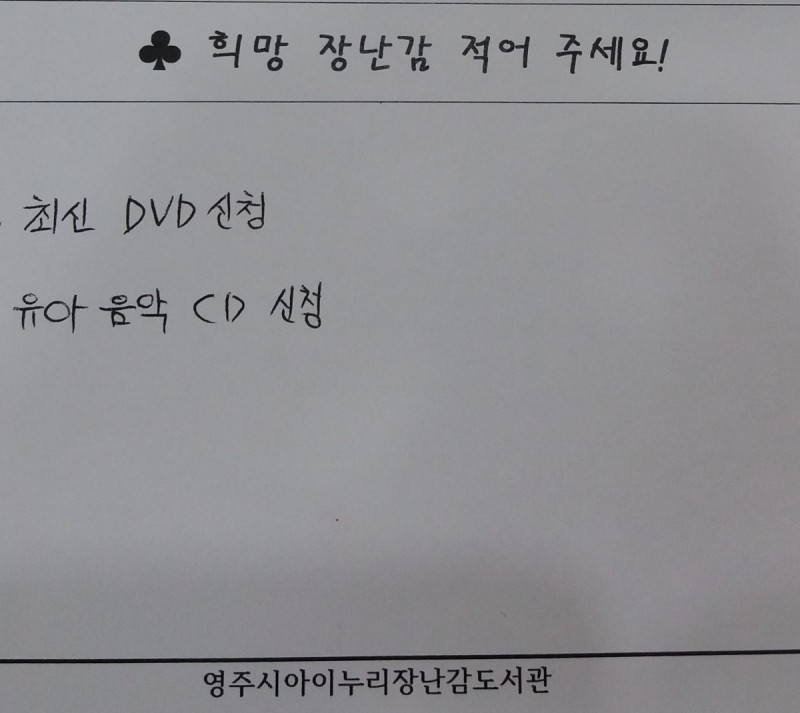 ♣ 희망 장난감 적어 주세요!
최신 DVD 신청
유아 음악 CD 신청
영주시아이누리장난감도서관